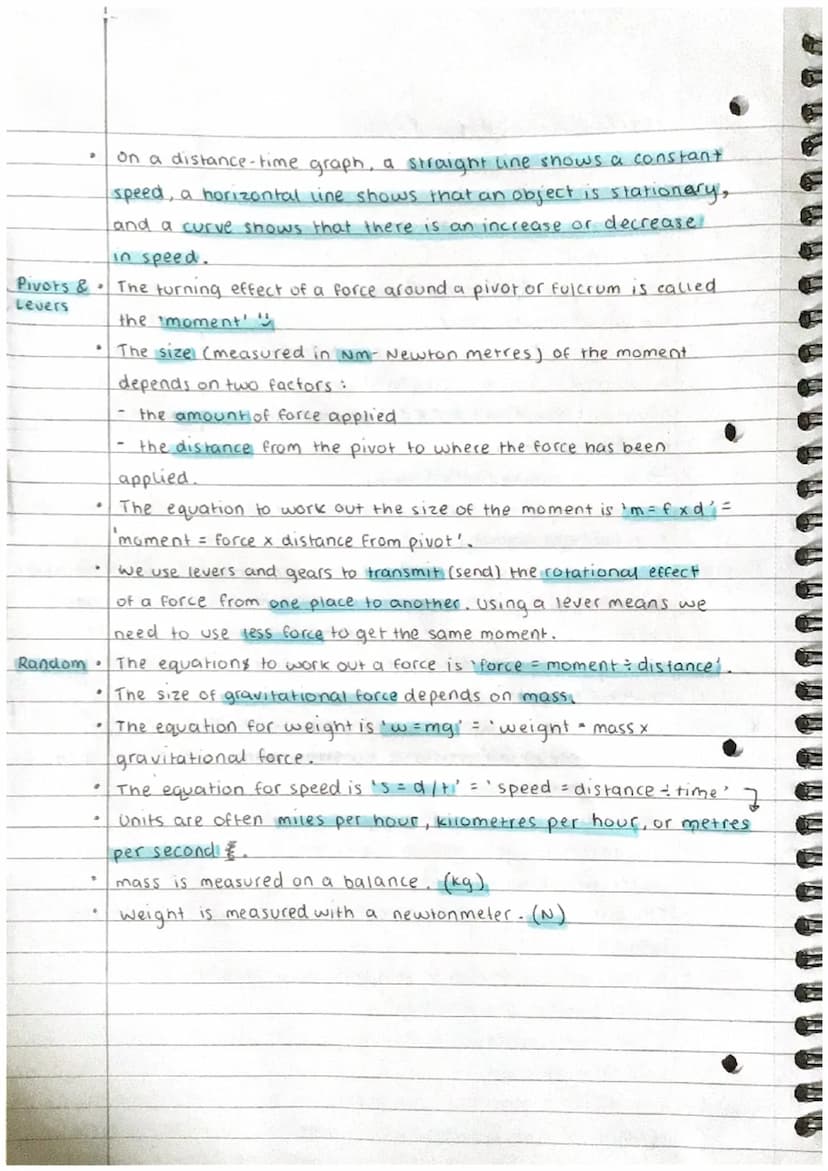 • On a distance-time graph, a straight line shows a constant
speed, a horizontal line shows that an object is stationary,
and a curve shows that there is an increase or decrease
in speed.
Pivots & • The turning effect of a force around a pivot or fulcrum is called
Levers
the 'moment'
• The size (measured in Nm - Newton metres) of the moment
depends on two factors:
- the amount of force applied
- the distance from the pivot to where the force has been
applied.
• The equation to work out the size of the moment is 'm = f x d' =
'moment = force x distance from pivot'.
• We use levers and gears to transmit (send) the rotational effect
of a force from one place to another. Using a lever means we
need to use less force to get the same moment.
Random • The equations to work out a force is 'force = moment ÷ distance'.
• The size of gravitational force depends on mass.
• The equation for weight is 'w = mg' = 'weight = mass x
gravitational force.
• The equation for speed is 's = d/t' = 'speed = distance ÷ time'
• Units are often miles per hour, kilometres per hour, or metres
per second.
• mass is measured on a balance. (kg)
• Weight is measured with a newtonmeter. (N)